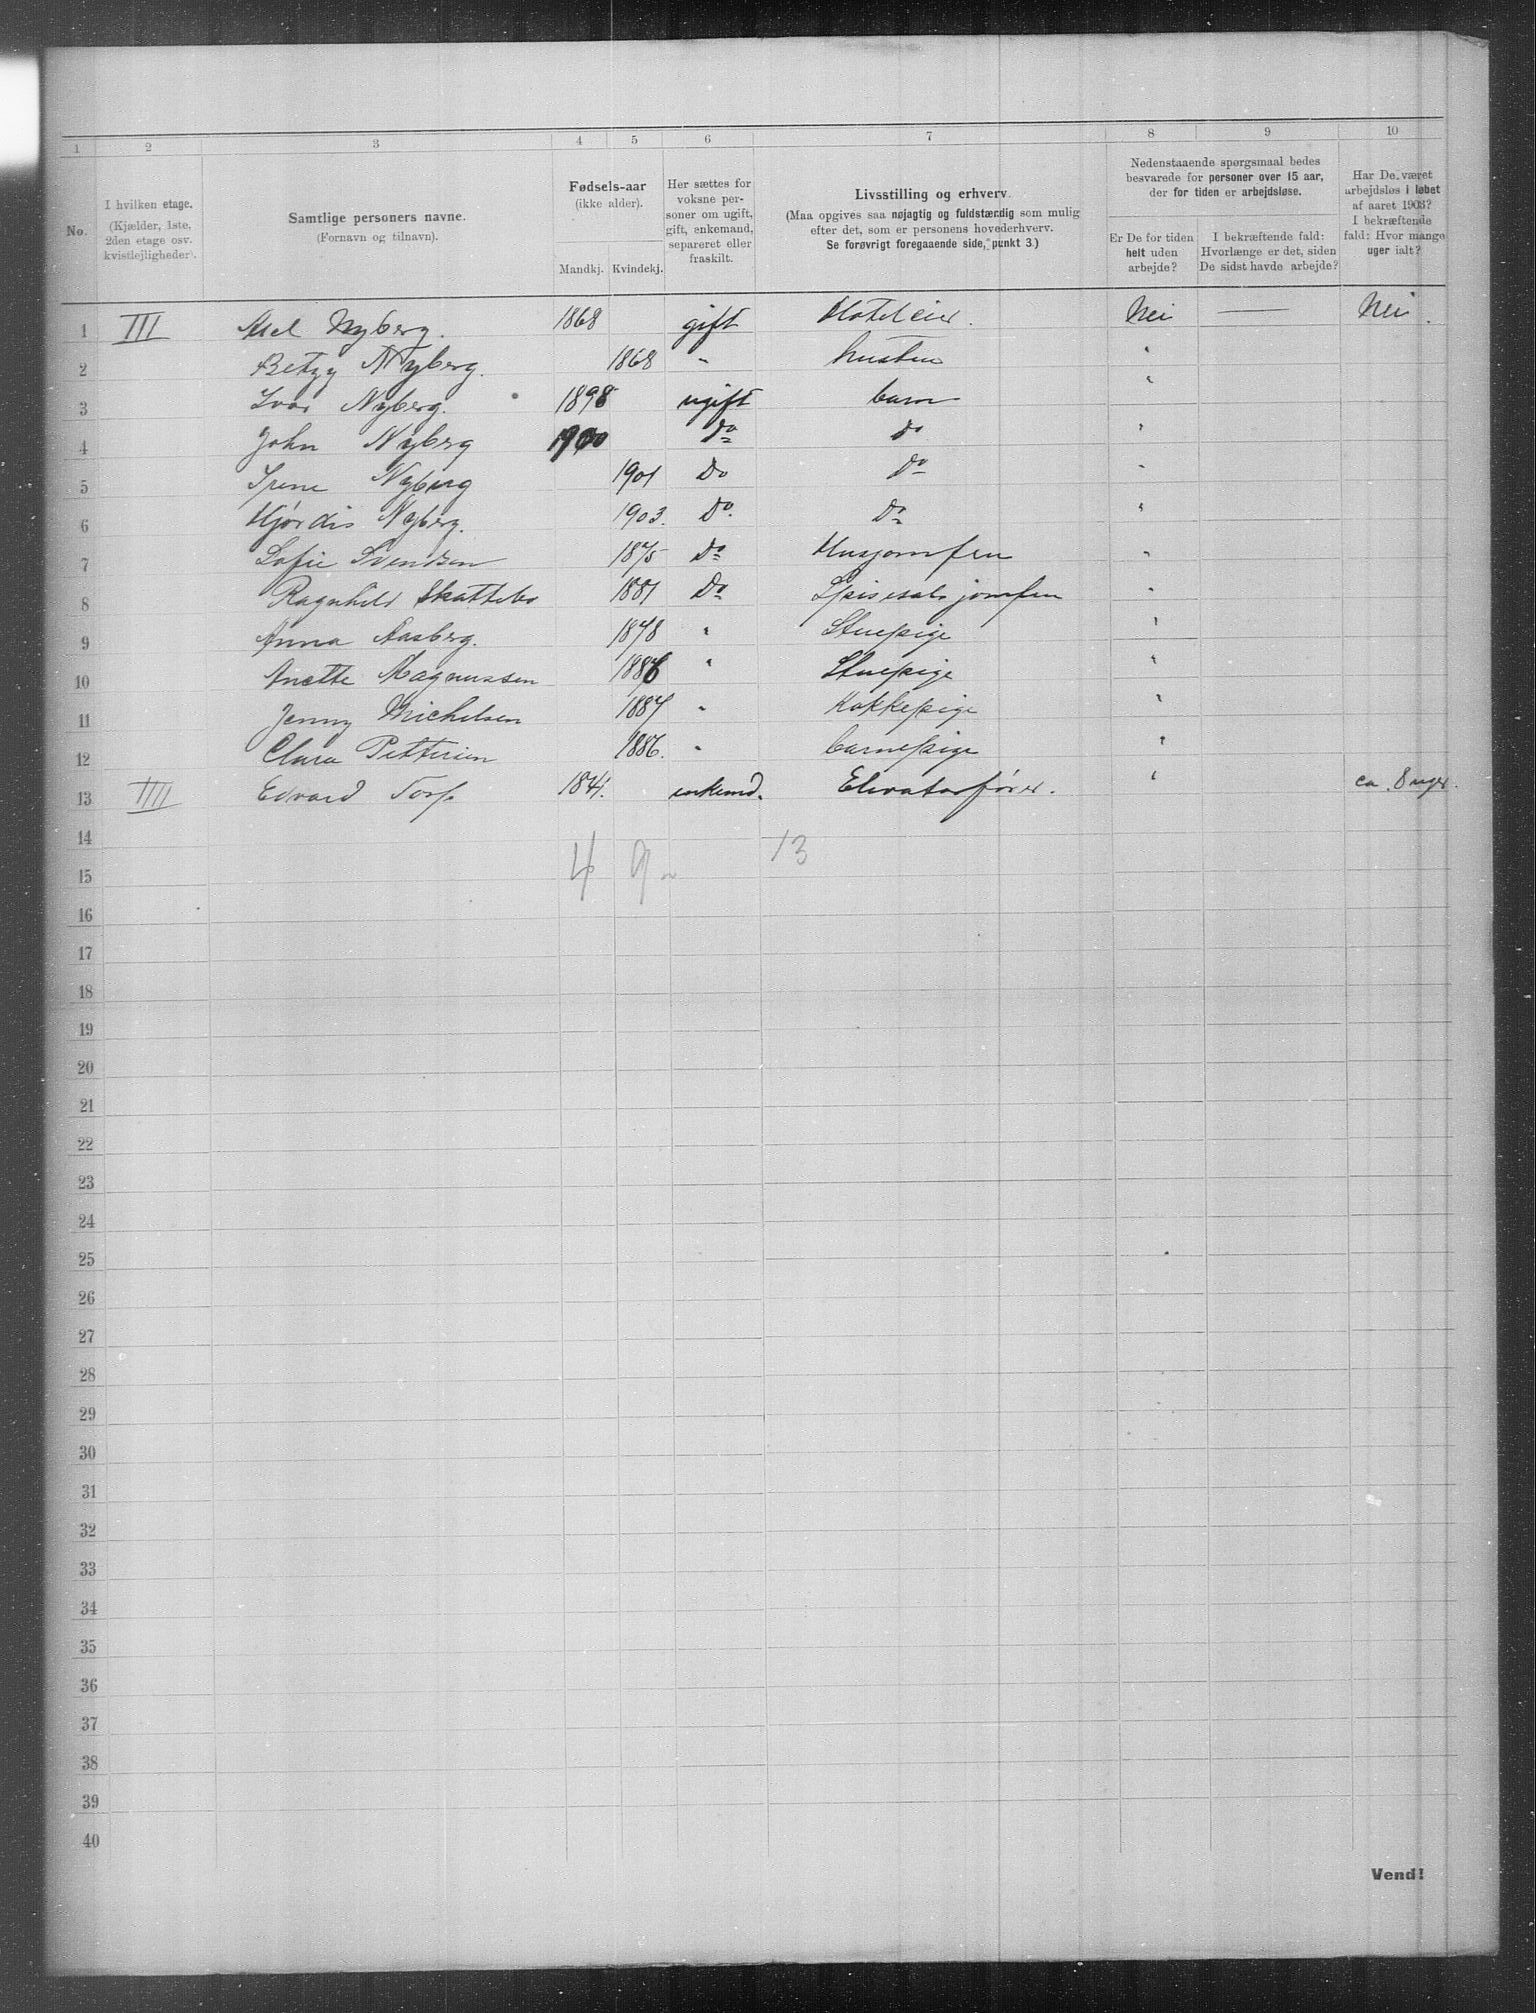 1 2 3 4 5 6 7 8 9 10
No.
I hvilken etage.
(Kjælder, 1ste, 2den etage osv. kvistlejligheder).
Samtlige personers navne.
(Fornavn og tilnavn).
Fødsels-aar
(ikke alder).
Mandkj. Kvindekj.
Her sættes for voksne personer om ugift, gift, enkemand, separeret eller fraskilt.
Livsstilling og erhverv.
(Maa opgives saa nøjagtig og fuldstændig som mulig efter det, som er personens hovederhverv.
Se forøvrigt foregaaende side, punkt 3.)
Nedenstaaende spørgsmaal bedes besvarede for personer over 15 aar, der for tiden er arbejdsløse.
Er De for tiden helt uden arbejde?
I bekræftende fald: Hvorlænge er det, siden De sidst havde arbejde?
Har De været arbejdsløs i løbet af aaret 1903? I bekræftende fald: Hvor mange uger ialt?
1 III Axel Nyberg. 1868 gift Hoteleier. Nei — Nei.
2 Betzy Nyberg. 1868 " hustru "
3 Ivar Nyberg. 1898 ugift barn "
4 John Nyberg 1900 Do do "
5 Irene Nyberg 1901 Do Do "
6 Hjørdis Nyberg. 1903. Do. Do "
7 Sofie Svendsen 1875 Do Husjomfru "
8 Ragnhild Skattebo 1881 Do Spisesalsjomfru "
9 Anna Aasberg. 1878 " Stuepige "
10 Anette Magnussen 1886 " Stuepige "
11 Jenny Michelsen 1887 " Kokkepige "
12 Clara Pettersen 1886. " barnepige "
13 IIII Edvard Torp 1841. enkemd. Elevatorfører. " ca. 8 uger.
14
4 9 13
15
16
17
18
19
20
21
22
23
24
25
26
27
28
29
30
31
32
33
34
35
36
37
38
39
40
Vend!